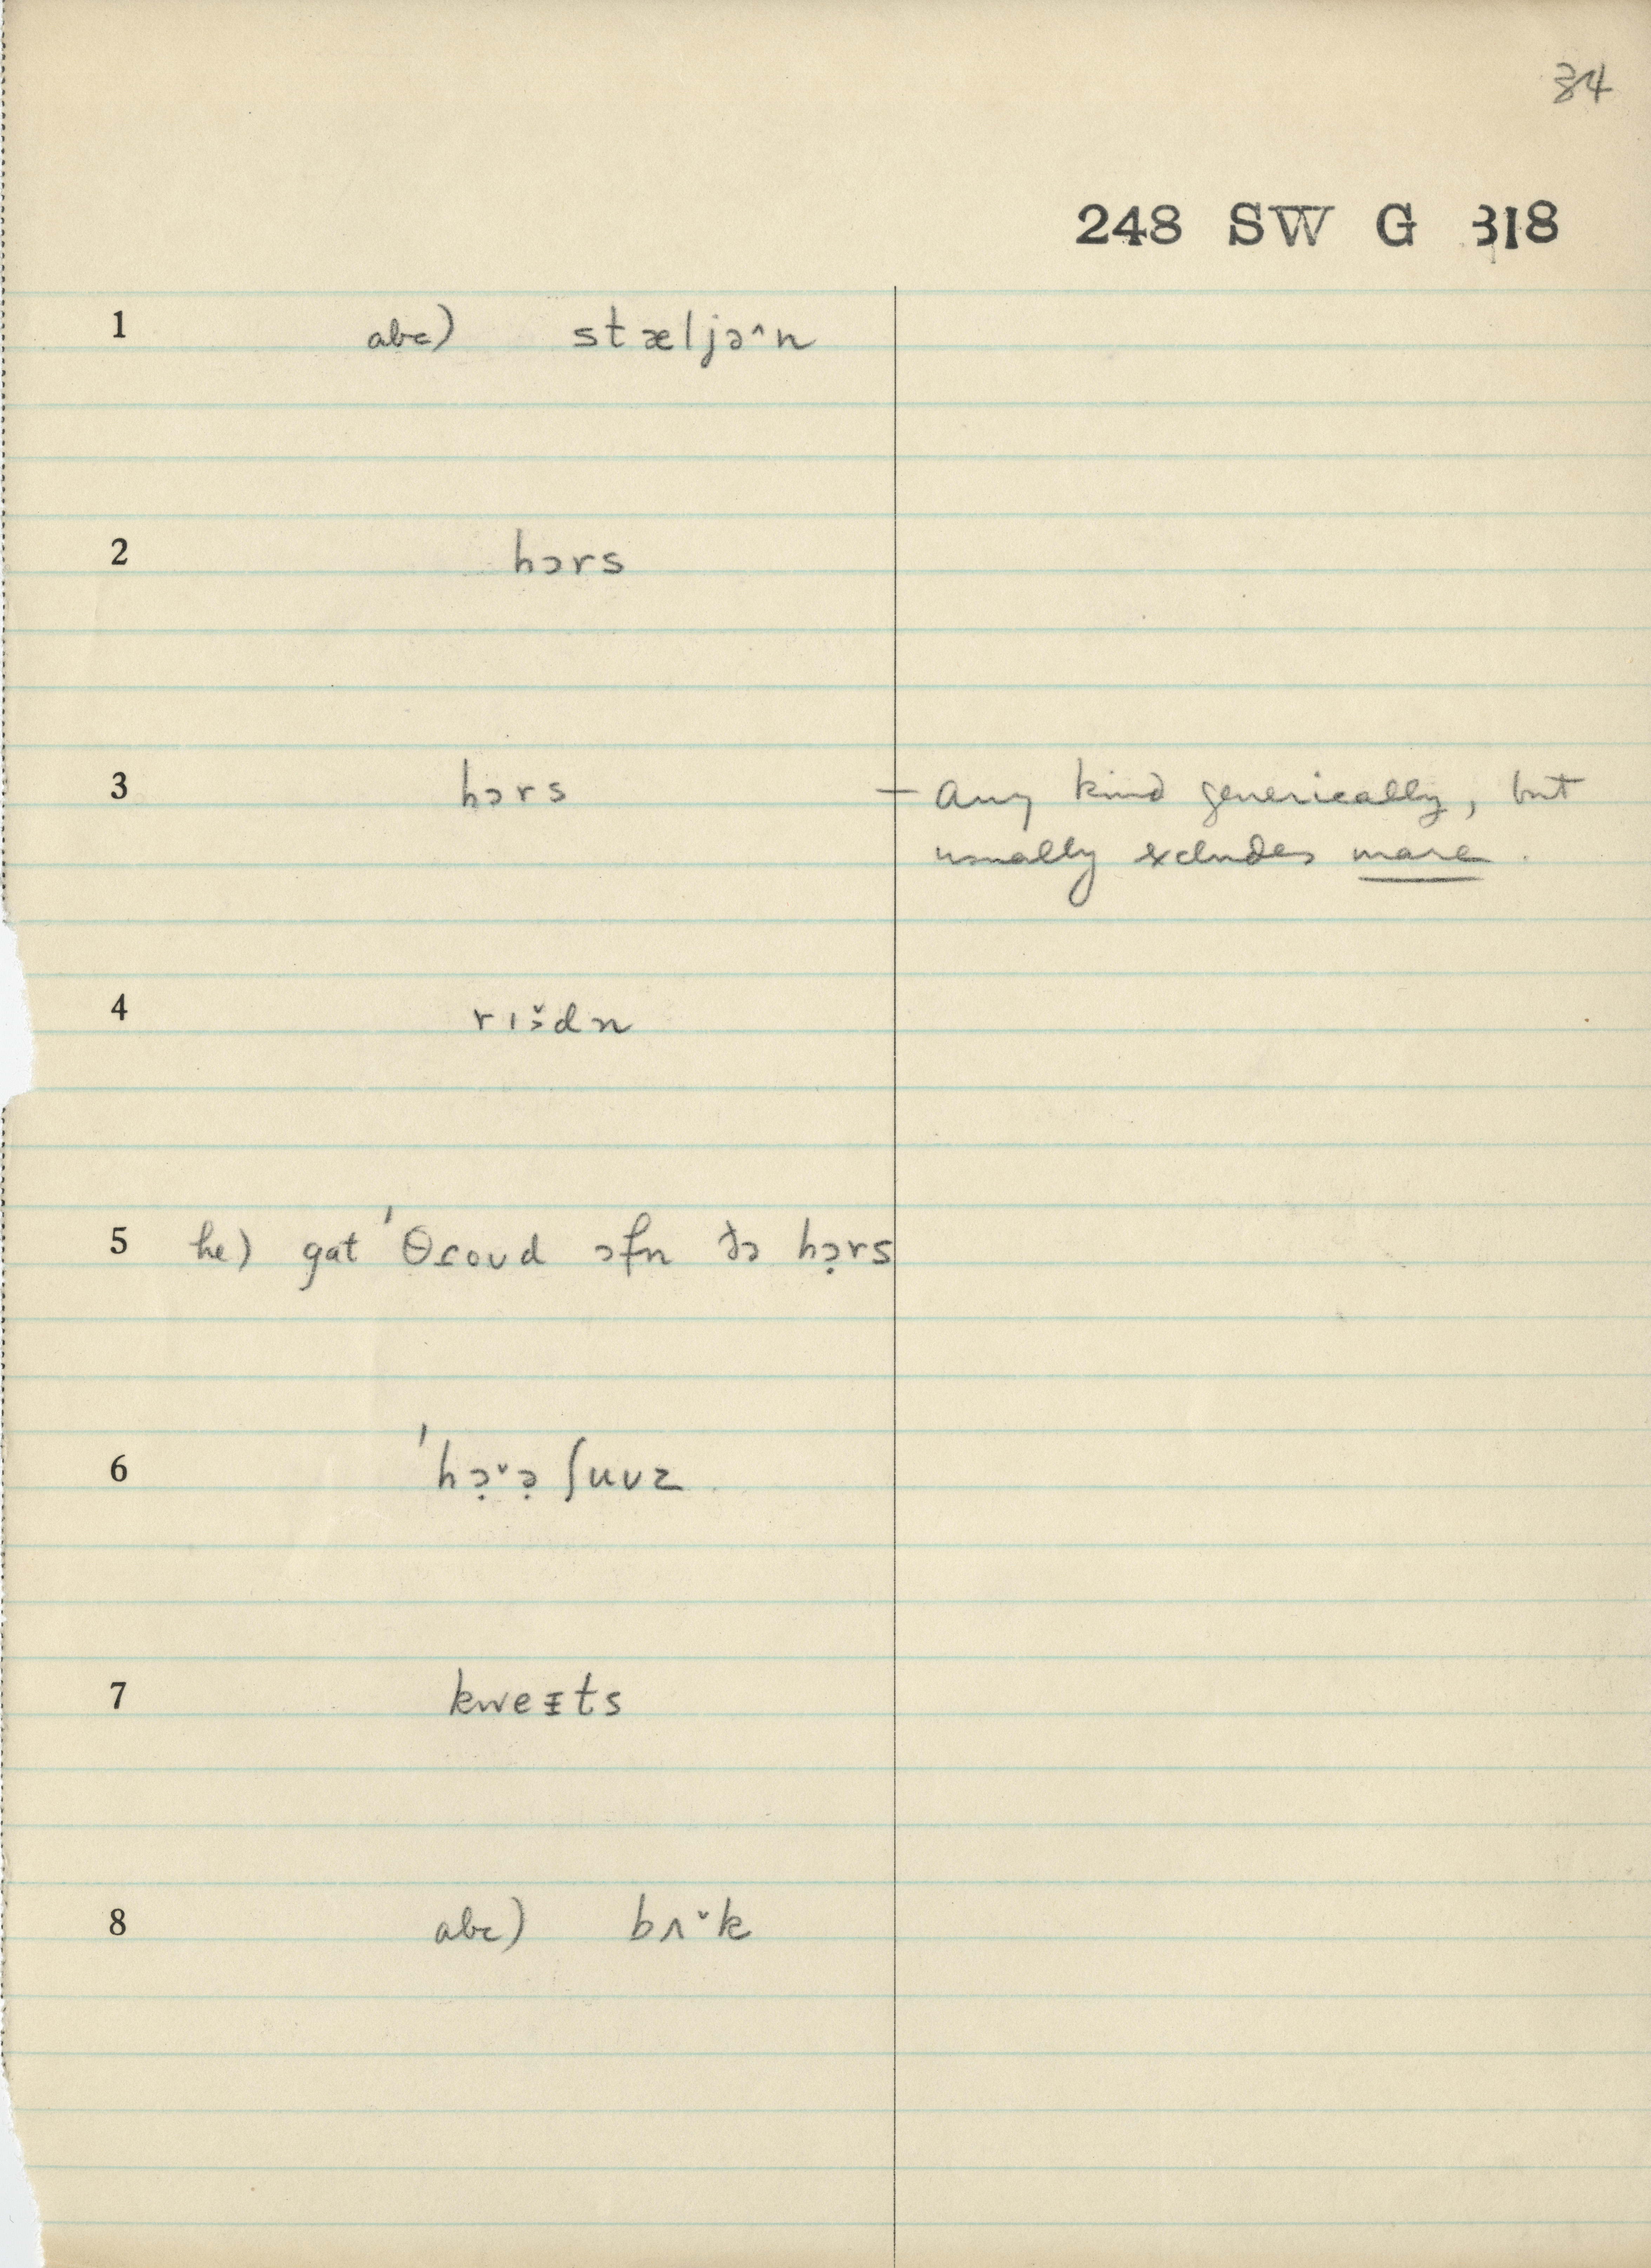 34
248 SW G 318
1 abc) stæljə^n
2 hɔrs
3 hɔrs — any kind generically, but
usually excludes mare.
4 rɪ:̌dn
5 he) gat 'θɾoʊd ɔf̵n ðə hɔ̣rs
6 'hɔ̣ˇə̣ ʃuʊz
7 kweɪ̵ts
8 abc) bʌˇk